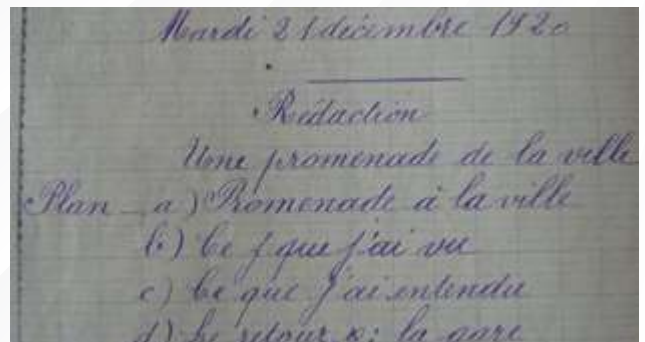 Mardi 21 décembre 1920
Rédaction
Une promenade de la ville
Plan - a) Promenade à la ville
b) Ce j que j'ai vu
c) Ce que j'ai entendu
d) Le retour à la gare